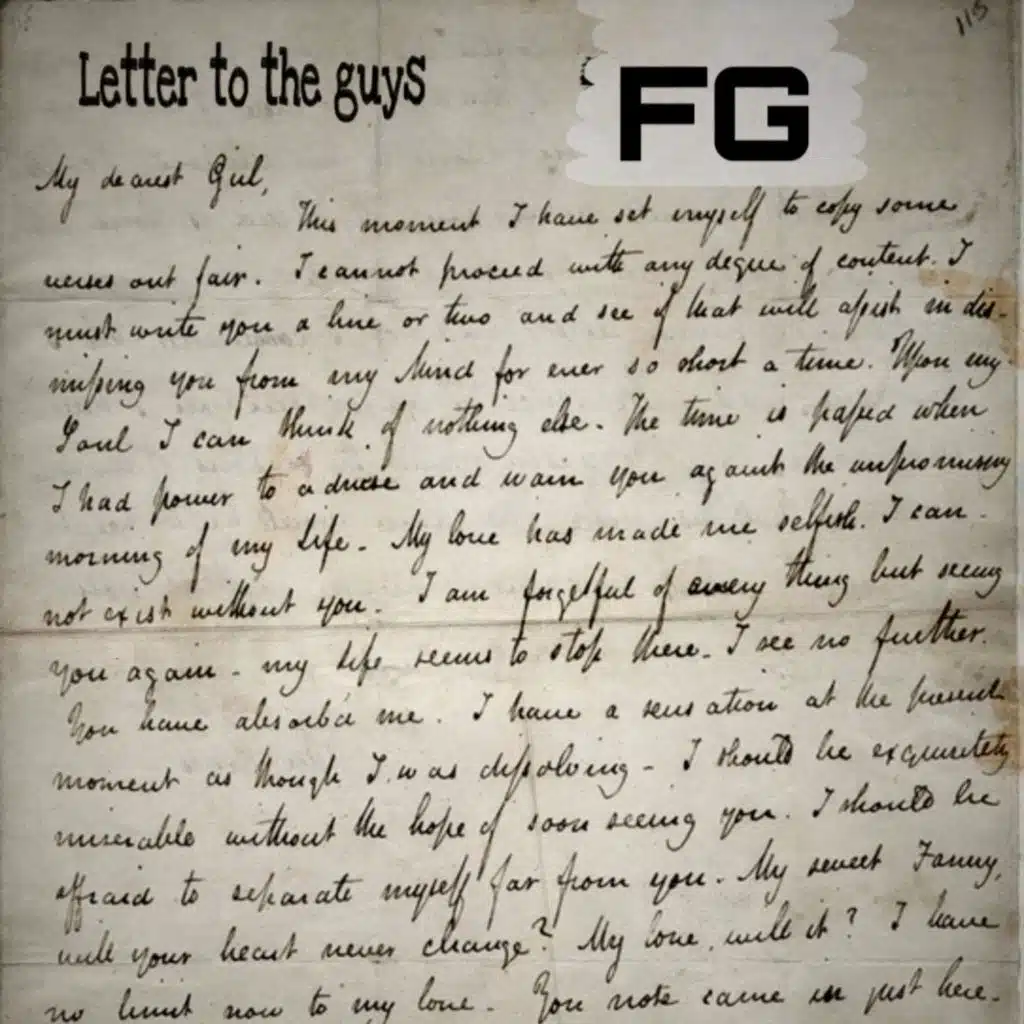 115
Letter to the guys
FG
My dearest Girl,
This moment I have set myself to copy some
verses out fair. I cannot proceed with any degree of content. I
must write you a line or two and see if that will assist in dis-
missing you from my Mind for ever so short a time. Upon my
Soul I can think of nothing else - The time is passed when
I had power to advise and warn you against the unpromising
morning of my Life - My love has made me selfish. I can-
not exist without you - I am forgetful of every thing but seeing
you again - my Life seems to stop there - I see no further.
You have absorb'd me. I have a sensation at the present
moment as though I was dissolving - I should be exquisitely
miserable without the hope of soon seeing you. I should be
affraid to separate myself far from you. My sweet Fanny,
will your heart never change? My love, will it? I have
no limit now to my love - You note came in just here -